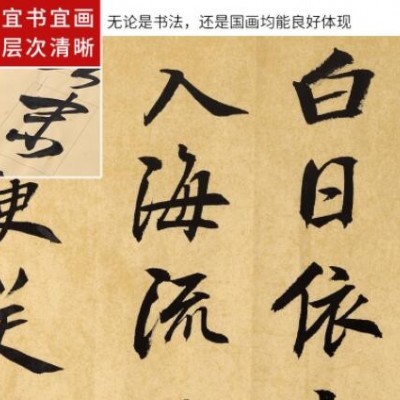 宜书宜画
层次清晰
无论是书法，还是国画均能良好体现
白日依
入海流